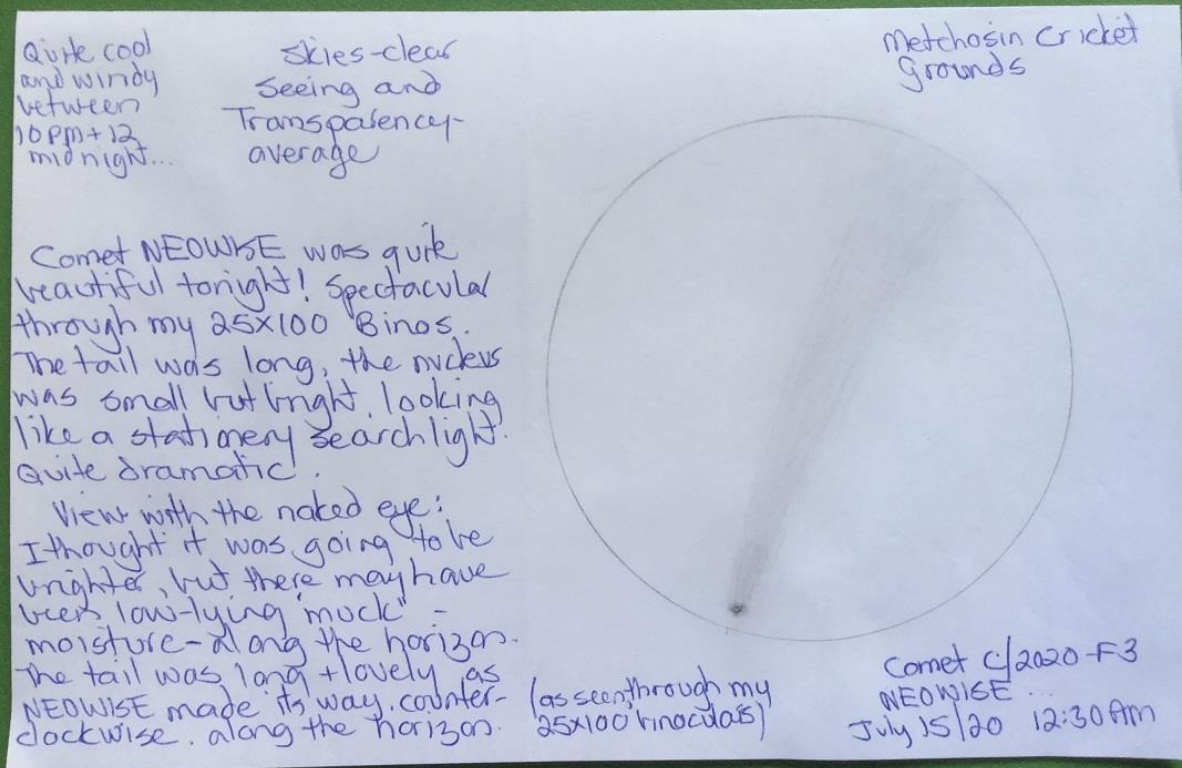 Quite cool
and windy
between
10pm + 12
midnight...
Skies-clear
Seeing and
Transparency-
average
Metchosin Cricket
Grounds
Comet NEOWISE was quite
beautiful tonight! Spectacular
through my 25X100 Binos.
The tail was long, the nucleus
was small but bright, looking
like a stationery searchlight.
Quite dramatic.
View with the naked eye:
I thought it was going to be
brighter, but there may have
been low-lying "muck" -
moisture - along the horizon.
The tail was long + lovely as
NEOWISE made its way counter-
clockwise. along the horizon.
(as seen through my
25X100 binoculars)
Comet C/2020-F3
NEOWISE ...
July 15/20 12:30 Am